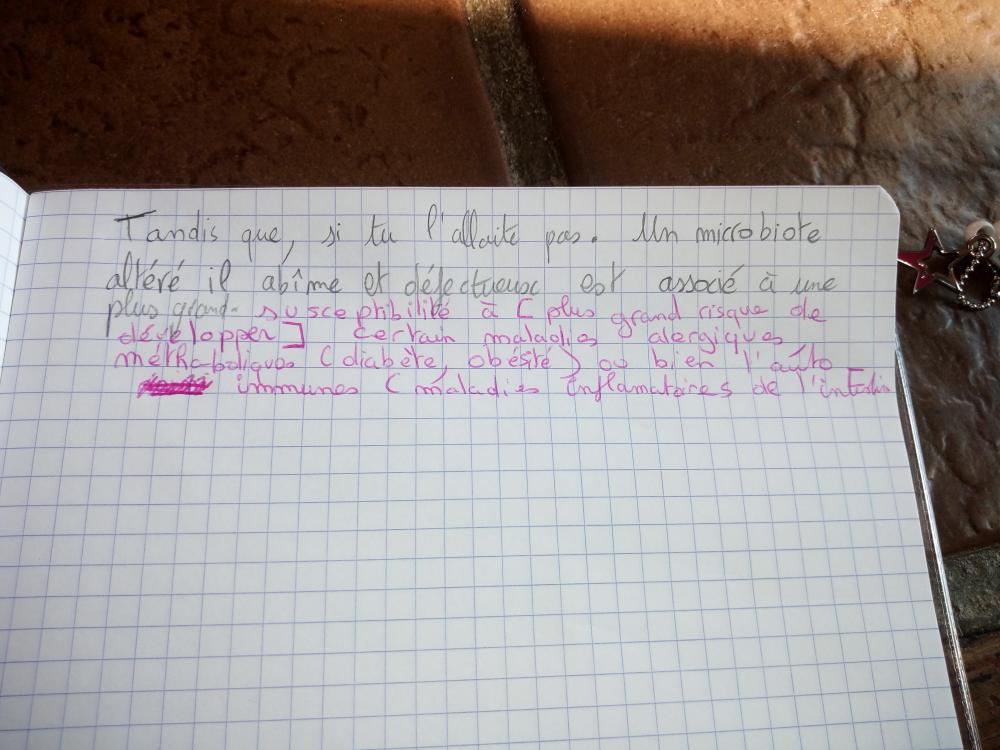 Tandis que, si tu l'allaite pas. Un microbiote
altéré il abîme et défectueux est associé à une
plus grand. susceptibilité à [ plus grand risque de
développer ] certain maladies alergiques
méthaboliques (diabète, obésité) ou bien l'auto
immunes (maladies inflamatoires de l'intestin